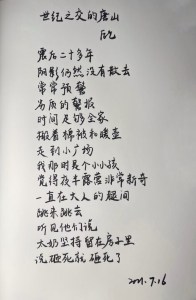 世纪之交的唐山
震后二十多年
阴影仍然没有散去
常常预警
劣质的警报
时间足够全家
搬着棉被和暖壶
走到小广场
我那时是个小小孩
觉得夜半露营非常新奇
一直在大人的腿间
跳来跳去
听见他们说
太奶坚持留在房子里
说砸死就砸死了
2021.7.16